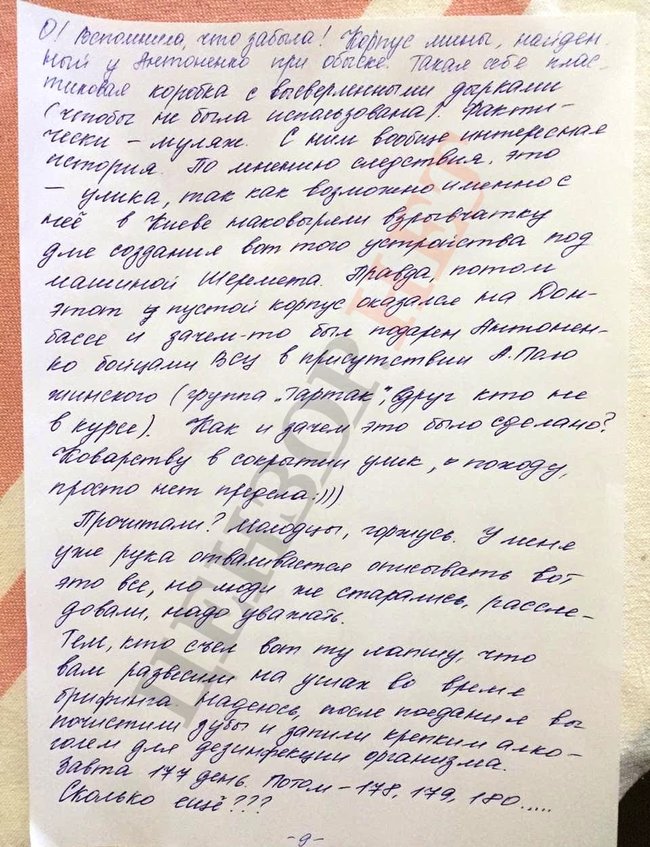 О! Вспомнила, что забыла! Корпус мины, найден-
ный у Антоненко при обыске. Такая себе плас-
тиковая коробка с высверлинными дырками
(чтобы не была использована). Факти-
чески – муляж. С ним вообще интересная
история. По мнению следствия, это
– улика, так как возможно именно с
неё в Киеве наковыряли взрывчатку
для создания вот того устройства под
машиной Шеремета. Правда, потом
этот пустой корпус оказался на Дон-
бассе и зачем-то был подарен Антонен-
ко бойцами ВСУ в присутствии А. Поло
жинского (группа "Тартак", вдруг кто не
в курсе). Как и зачем это было сделано?
Коварству в сокрытии улик, походу,
просто нет предела:)))
Прочитали? Молодцы, горжусь. У меня
уже рука отваливается описывать вот
это все, но люди же старались, рассле-
довали, надо уважать.
Тем, кто съел вот ту лапшу, что
вам развесили на ушах во время
брифинга. Надеюсь, после поедания вы
почистили зубы и запили крепким алко-
голем для дезинфекции организма.
Завта 177 день. Потом – 178, 179, 180.....
Сколько ещё???
-9-
ЦЕНЗОР.НЕТ